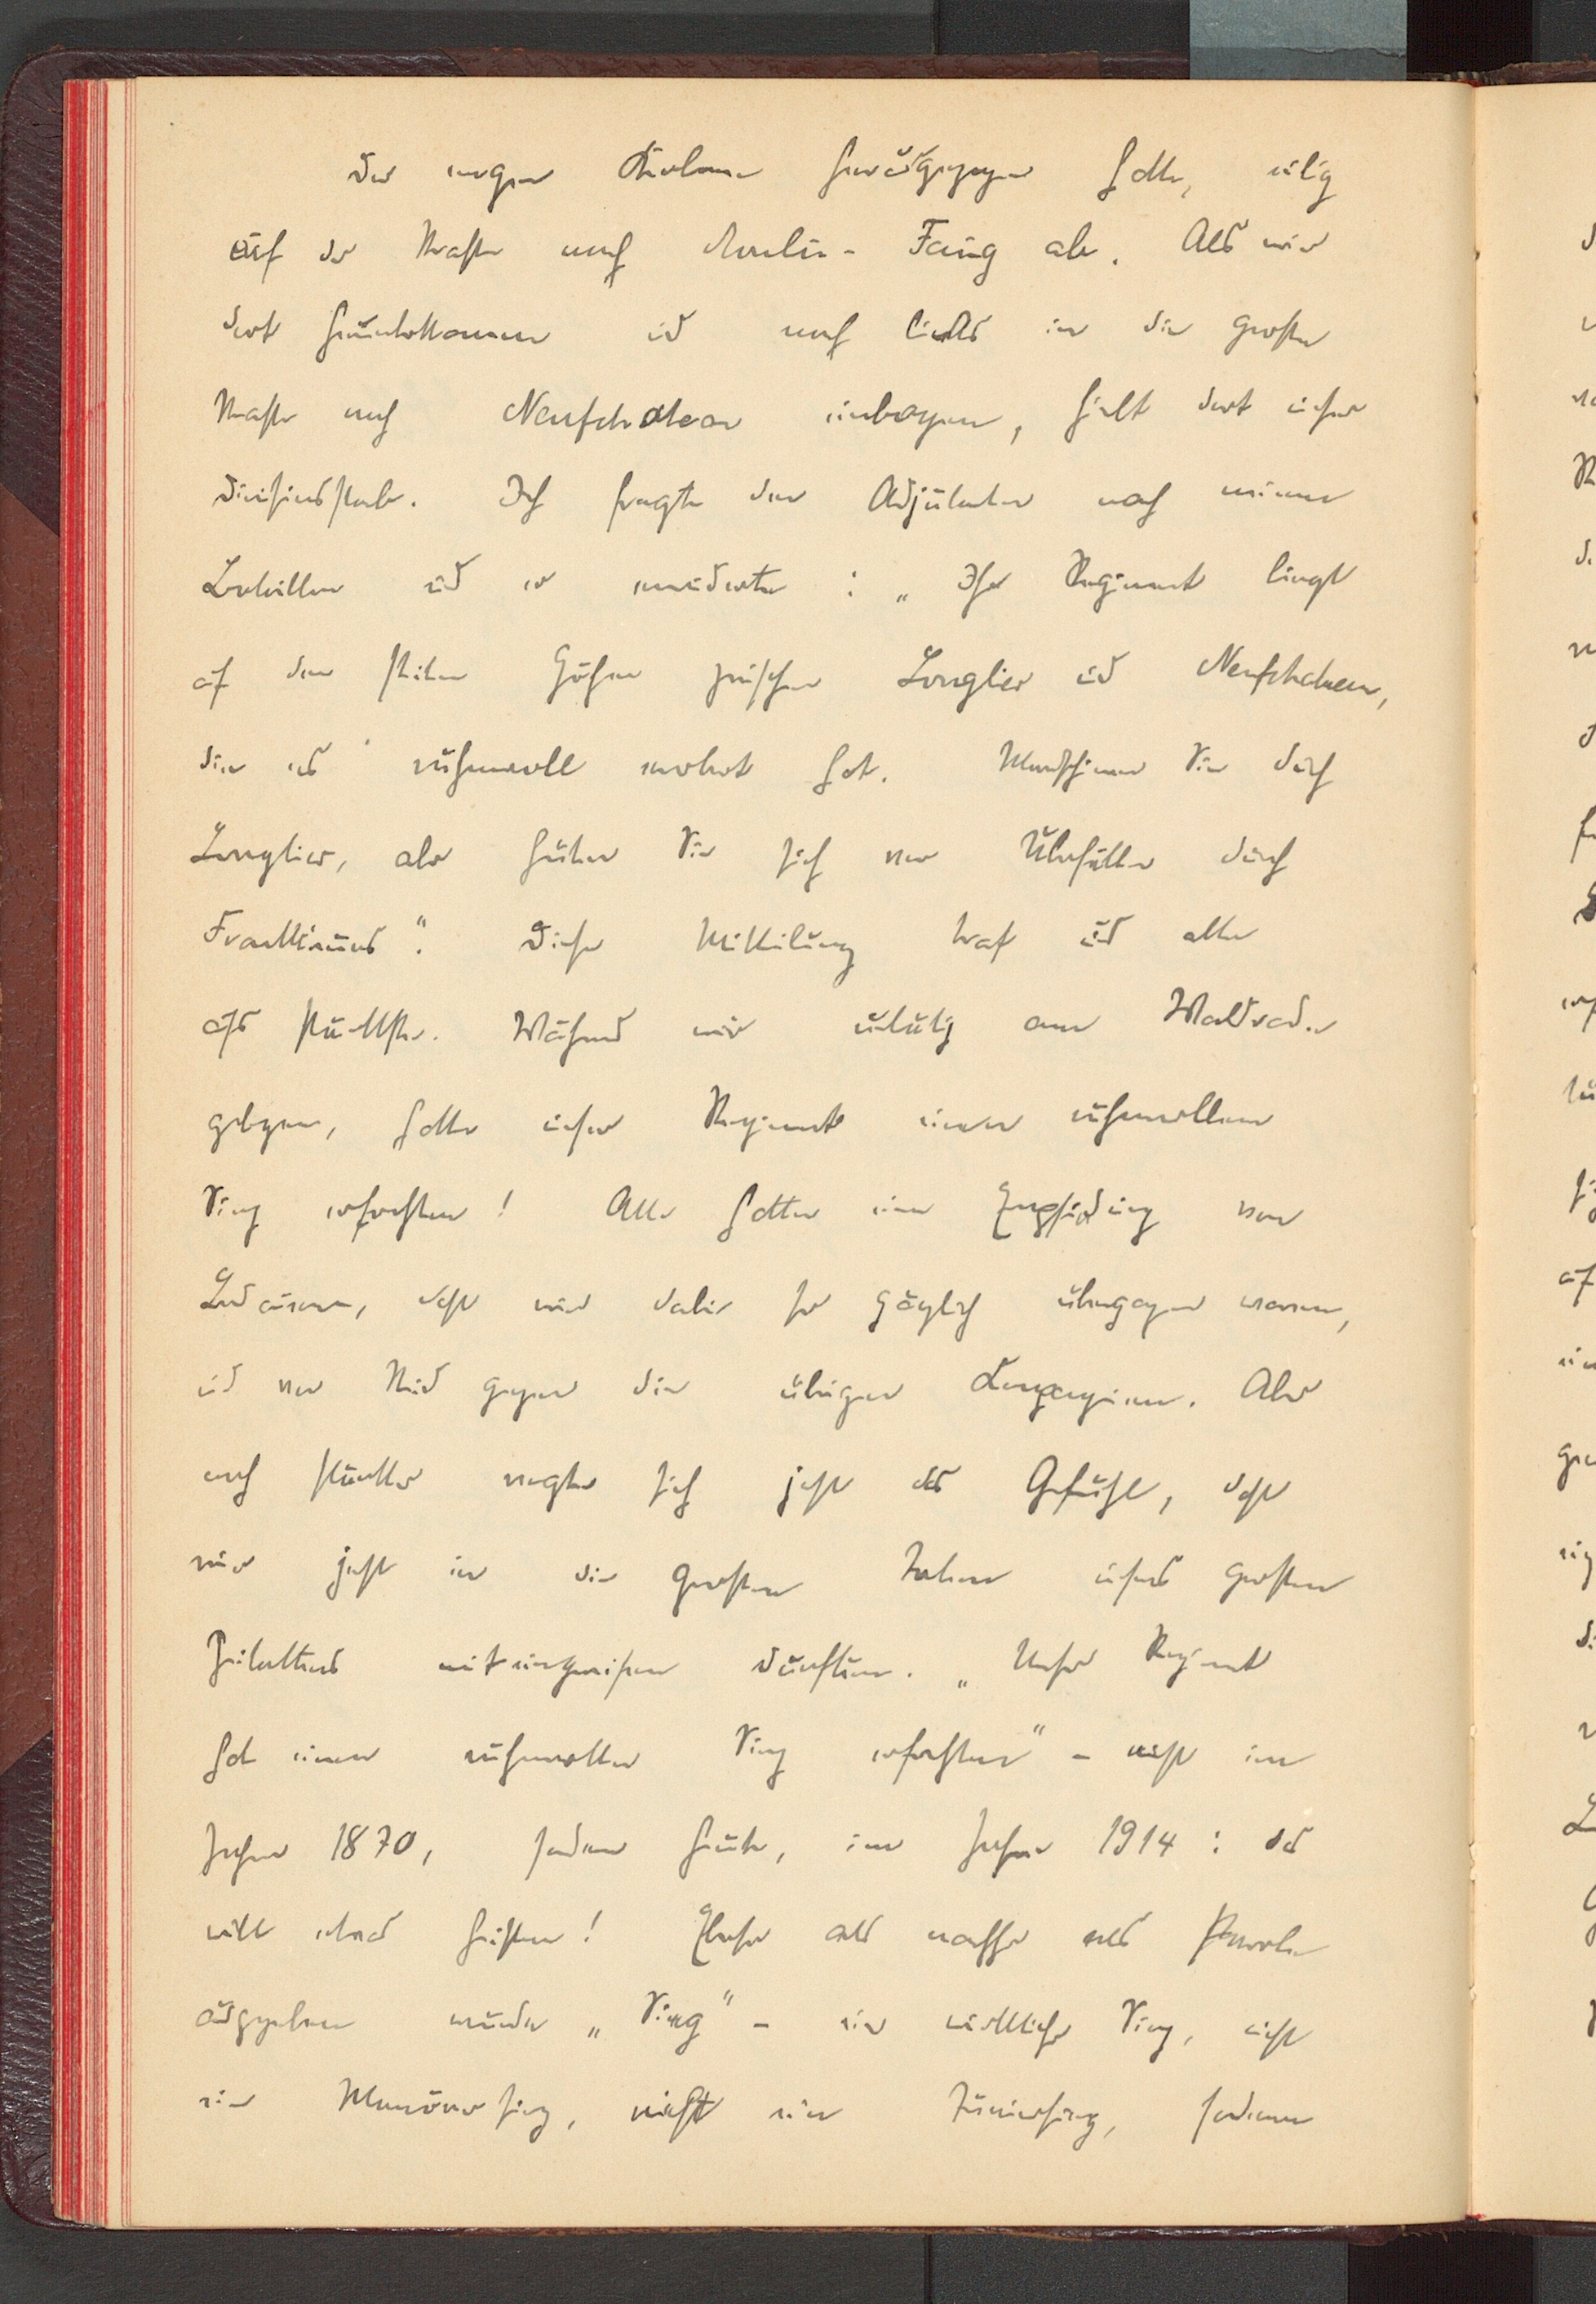 der wegen Kolonne herausgezogen hatte, eilig
auf der Straße nach Moulin-Faing ab. Als wir
dort herunterkamen und nach links in die große
Straße nach Neufchateau einbogen, hielt dort unser
Divisionsstab. Ich fragte den Adjutanten nach meinem
Bataillon und er erwiderte: „Ihr Regiment liegt
auf den steilen Höhen zwischen Longlier und Neufchateau,
die es ruhmvoll erobert hat. Marschieren Sie durch
Longlier, aber hüten Sie sich vor Überfällen durch
Franktireurs". Diese Mitteilung traf uns alle
aufs stärkste. Während wir untätig am Waldrande
gelegen, hatte unser Regiment einen ruhmvollen
Sieg erfochten! Alle hatten eine Empfindung von
Bedauern, daß wir dabei so gänzlich übergangen waren,
und von Neid gegen die übrigen Kompagnien. Aber
noch stärker regte sich jetzt das Gefühl, daß
wir jetzt in die großen Taten unseres großen
Zeitalters miteingreifen durften. „Unser Regiment
hat einen ruhmvollen Sieg erfochten" – nicht im
Jahre 1870, sondern heute, im Jahre 1914: das
will etwas heißen! Ebenso als nachher als Parole
ausgegeben wurde „Sieg" – ein wirklicher Sieg, nicht
ein Manöversieg, nicht ein Turniersieg, sondern